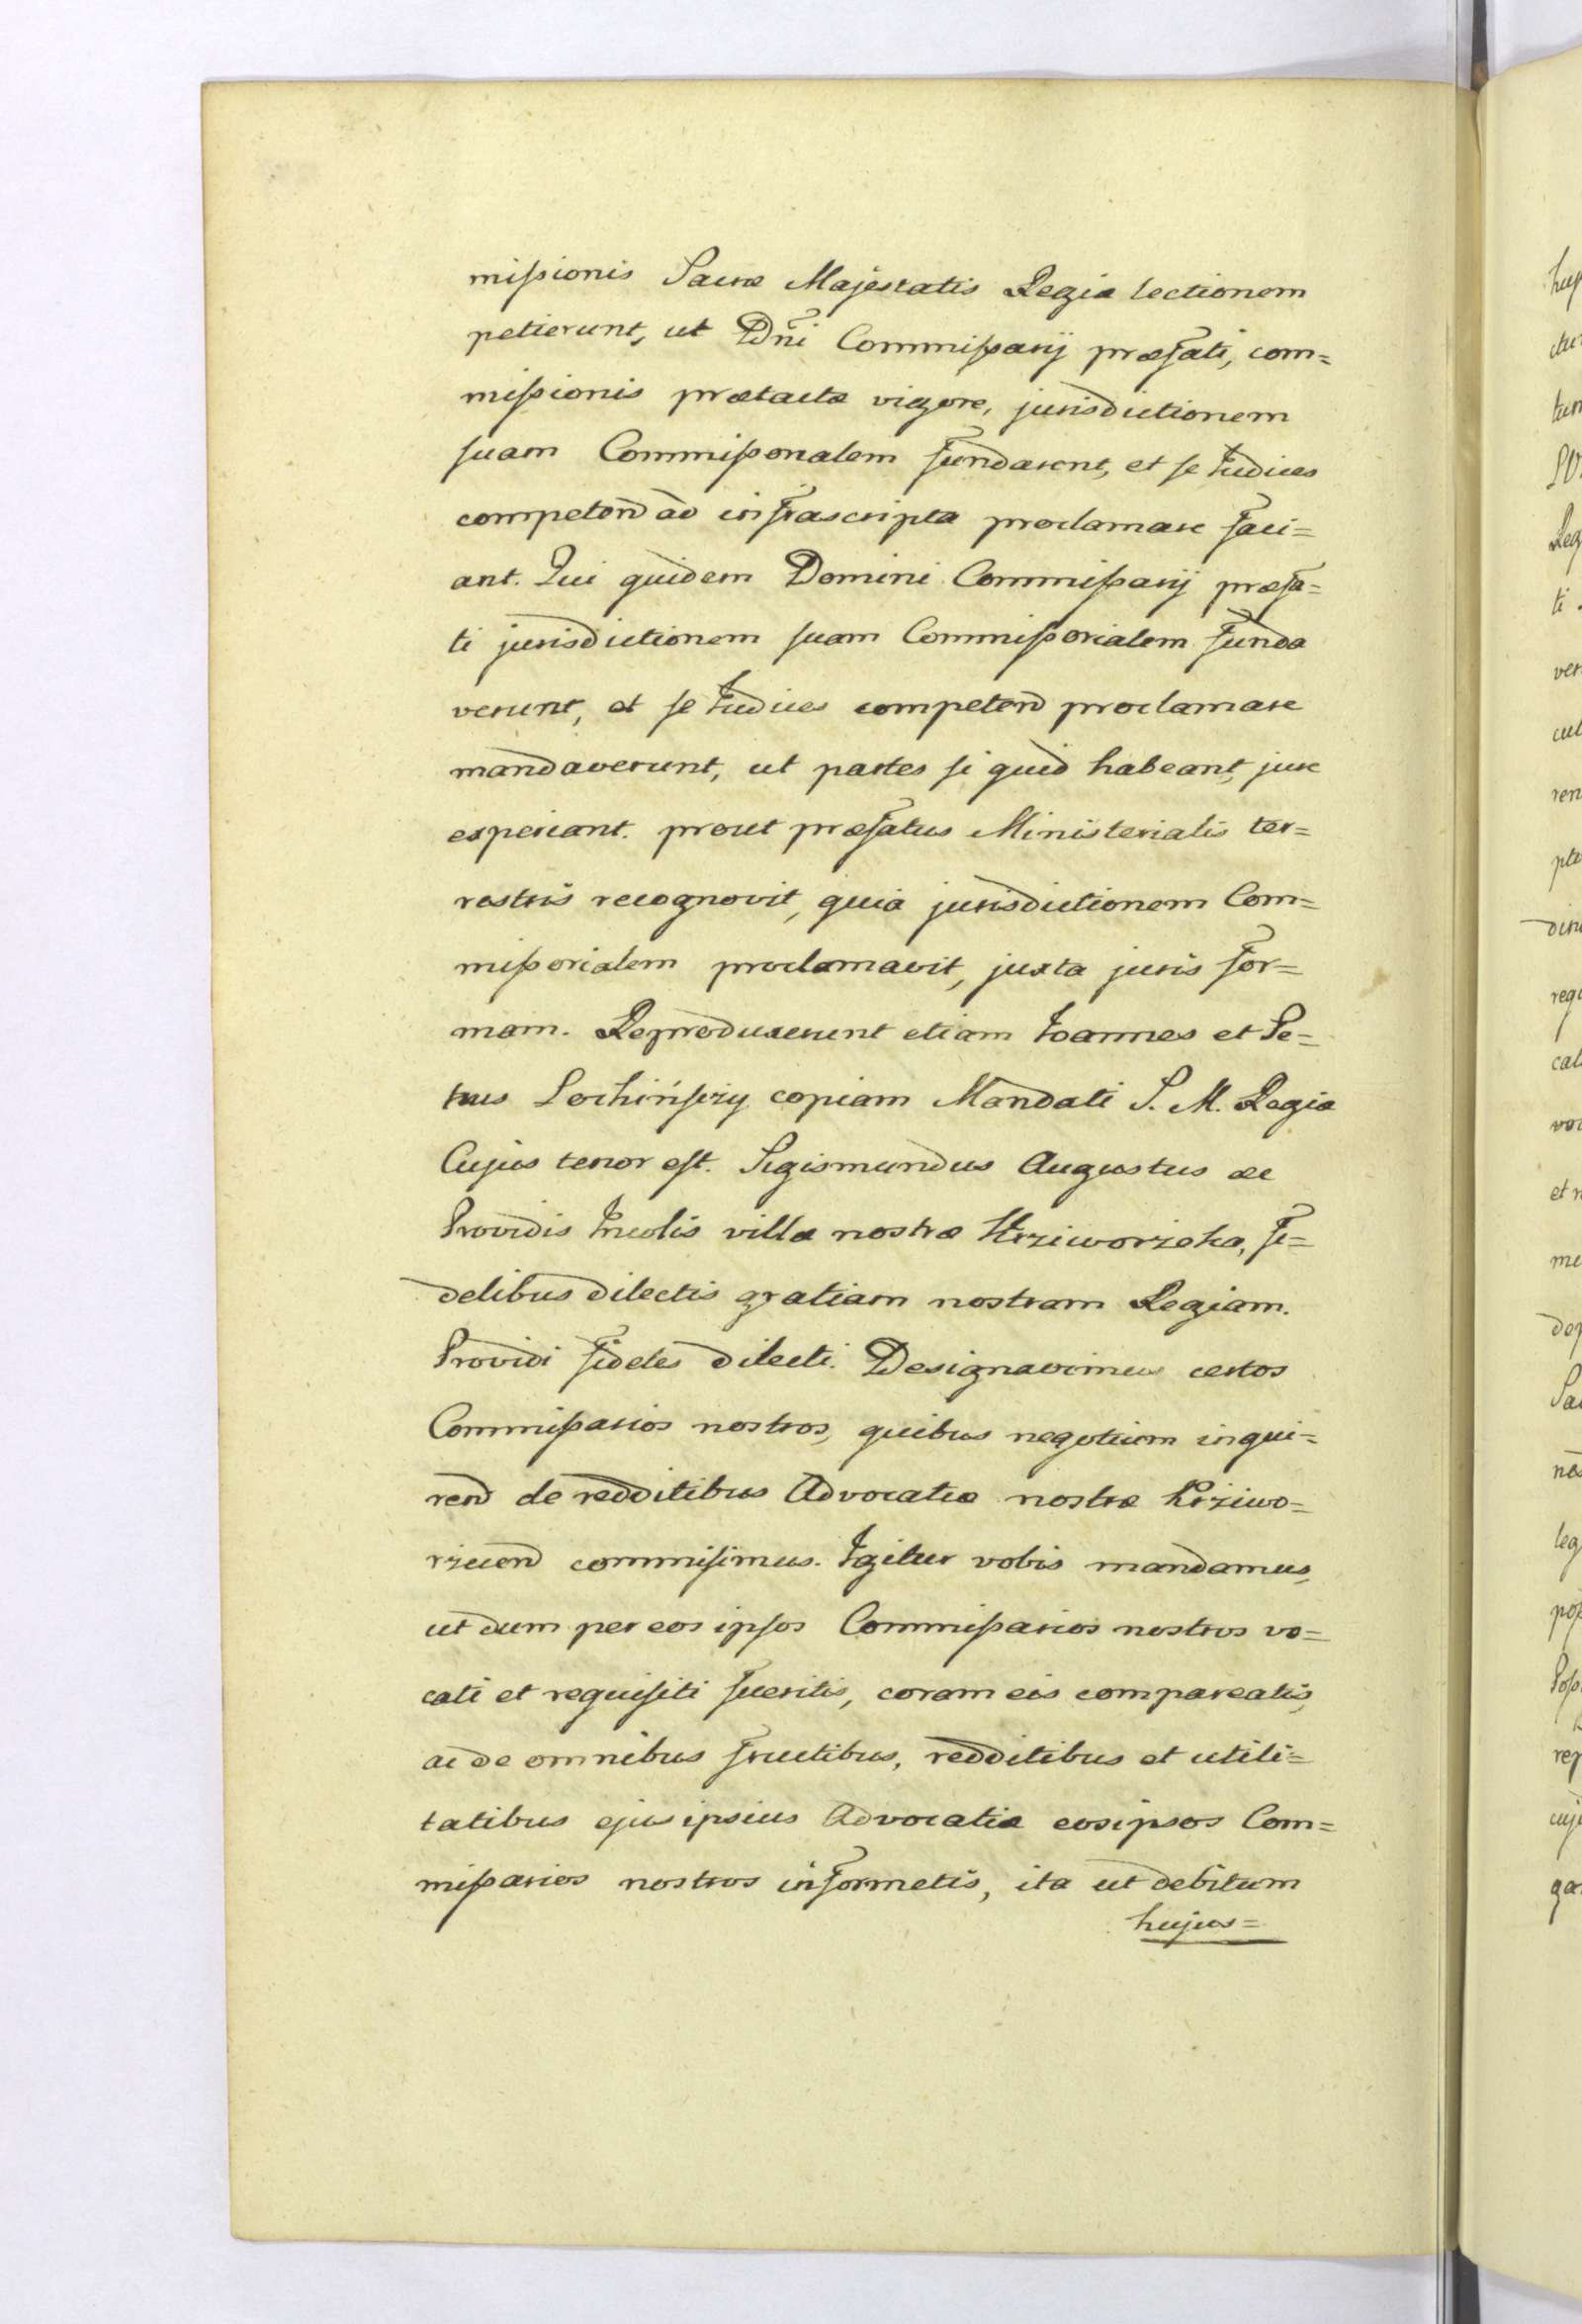 mißionis Sacræ Majestatis Regiæ lectionem
petierunt, ut Dñi Commißarij præfati, com=
mißionis prætactæ vigore, jurisdictionem
suam Commißonalem fundarent, et se Iudices
competend ad infrascripta proclamare faci=
ant. Qui quidem Domini Commißarij præfa=
ti jurisdictionem suam Commißorialem funda
verunt, et se Iudices competend proclamare
mandaverunt, ut partes si quid habeant, jure
experiant. prout præfatus Ministerialis ter=
restris recognovit, quia jurisdictionem Com=
mißorialem proclamavit, juxta juris for=
mam. Reproduxerunt etiam Ioannes et Pe=
trus Lochińscy copiam Mandati S. M. Regiæ
Cujus tenor est. Sigismundus Augustus ac
Providis Incolis villæ nostræ Krziworzeka, fi=
delibus dilectis gratiam nostram Regiam.
Providi fideles dilecti. Designavimus certos
Commißarios nostros, quibus negotium inqui=
rend de redditibus Advocatiæ nostræ Krziwo=
rzecend commisimus. Igitur vobis mandamus,
ut dum per eos ipsos Commißarios nostros vo=
cati et requisiti fueritis, coram eis compareatis,
ac de omnibus fructibus, redditibus et utili=
tatibus ejus ipsius Advocatiæ eosipsos Com=
mißarios nostros informetis, ita ut debitum
hujus=